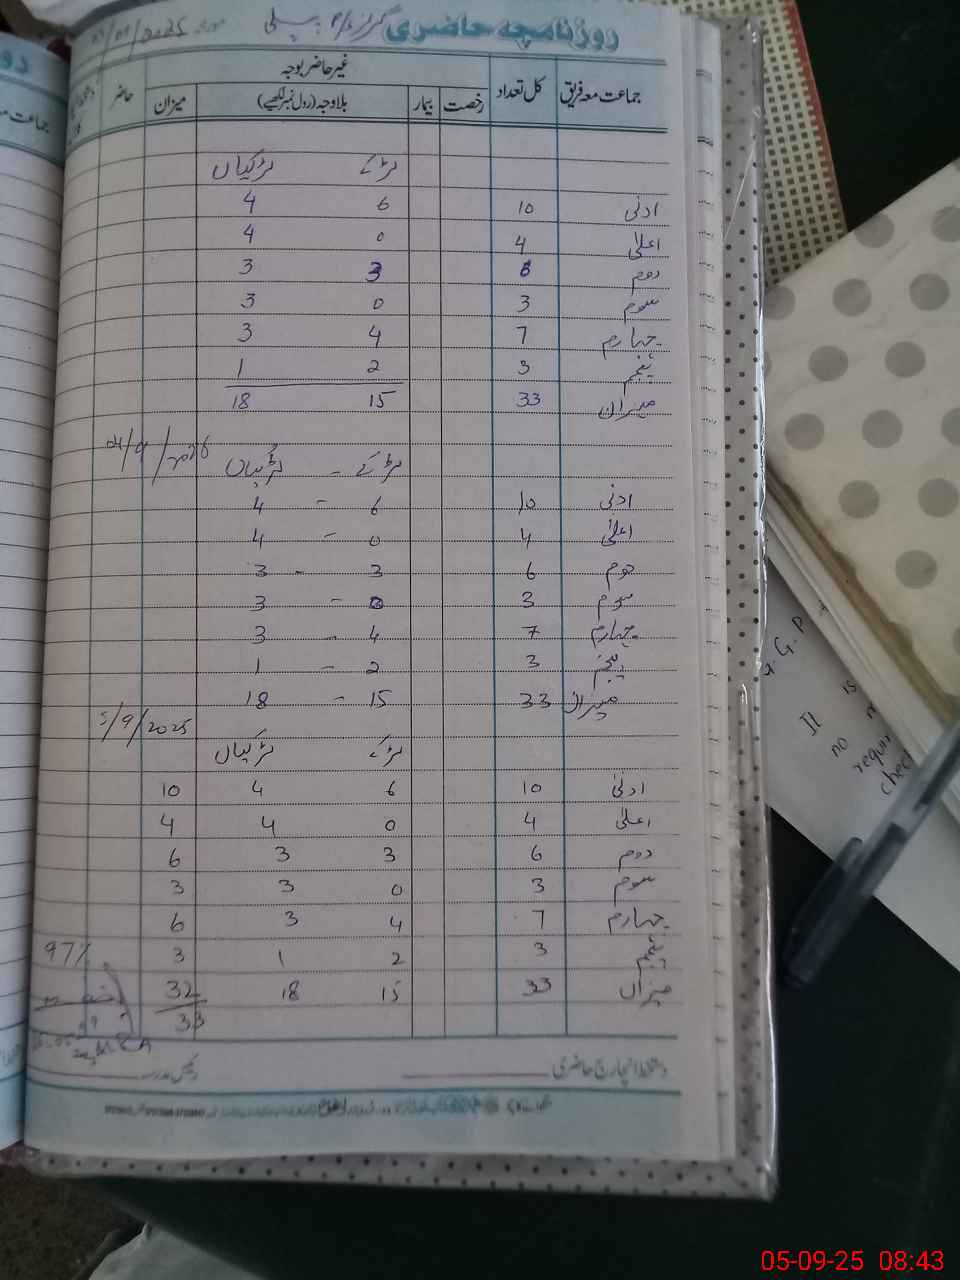 روزنامچہ حاضری گرلز P/S
جماعت معہ فریق کل تعداد غیر حاضر بوجہ حاضر
رخصت بیمار بلاوجہ (رول نمبر لکھیے) میزان
لڑکے لڑکیاں
ادنیٰ 10 6 4
اعلیٰ 4 0 4
دوم 6 3 3
سوم 3 0 3
چہارم 7 4 3
پنجم 3 2 1
میزان 33 15 18
لڑکے - لڑکیاں
ادنیٰ 10 6 - 4
اعلیٰ 4 0 - 4
دوم 6 3 - 3
سوم 3 0 - 3
چہارم 7 4 - 3
پنجم 3 2 - 1
میزان 33 15 - 18
5/9/2025
لڑکے لڑکیاں
ادنیٰ 10 6 4 10
اعلیٰ 4 0 4 4
دوم 6 3 3 6
سوم 3 0 3 3
چہارم 7 4 3 6
پنجم 3 2 1 3 97%
میزان 33 15 18 32
33
دستخط انچارج حاضری رئیس مدرسہ
G. P
It is
no
requir
chec
05-09-25 08:43